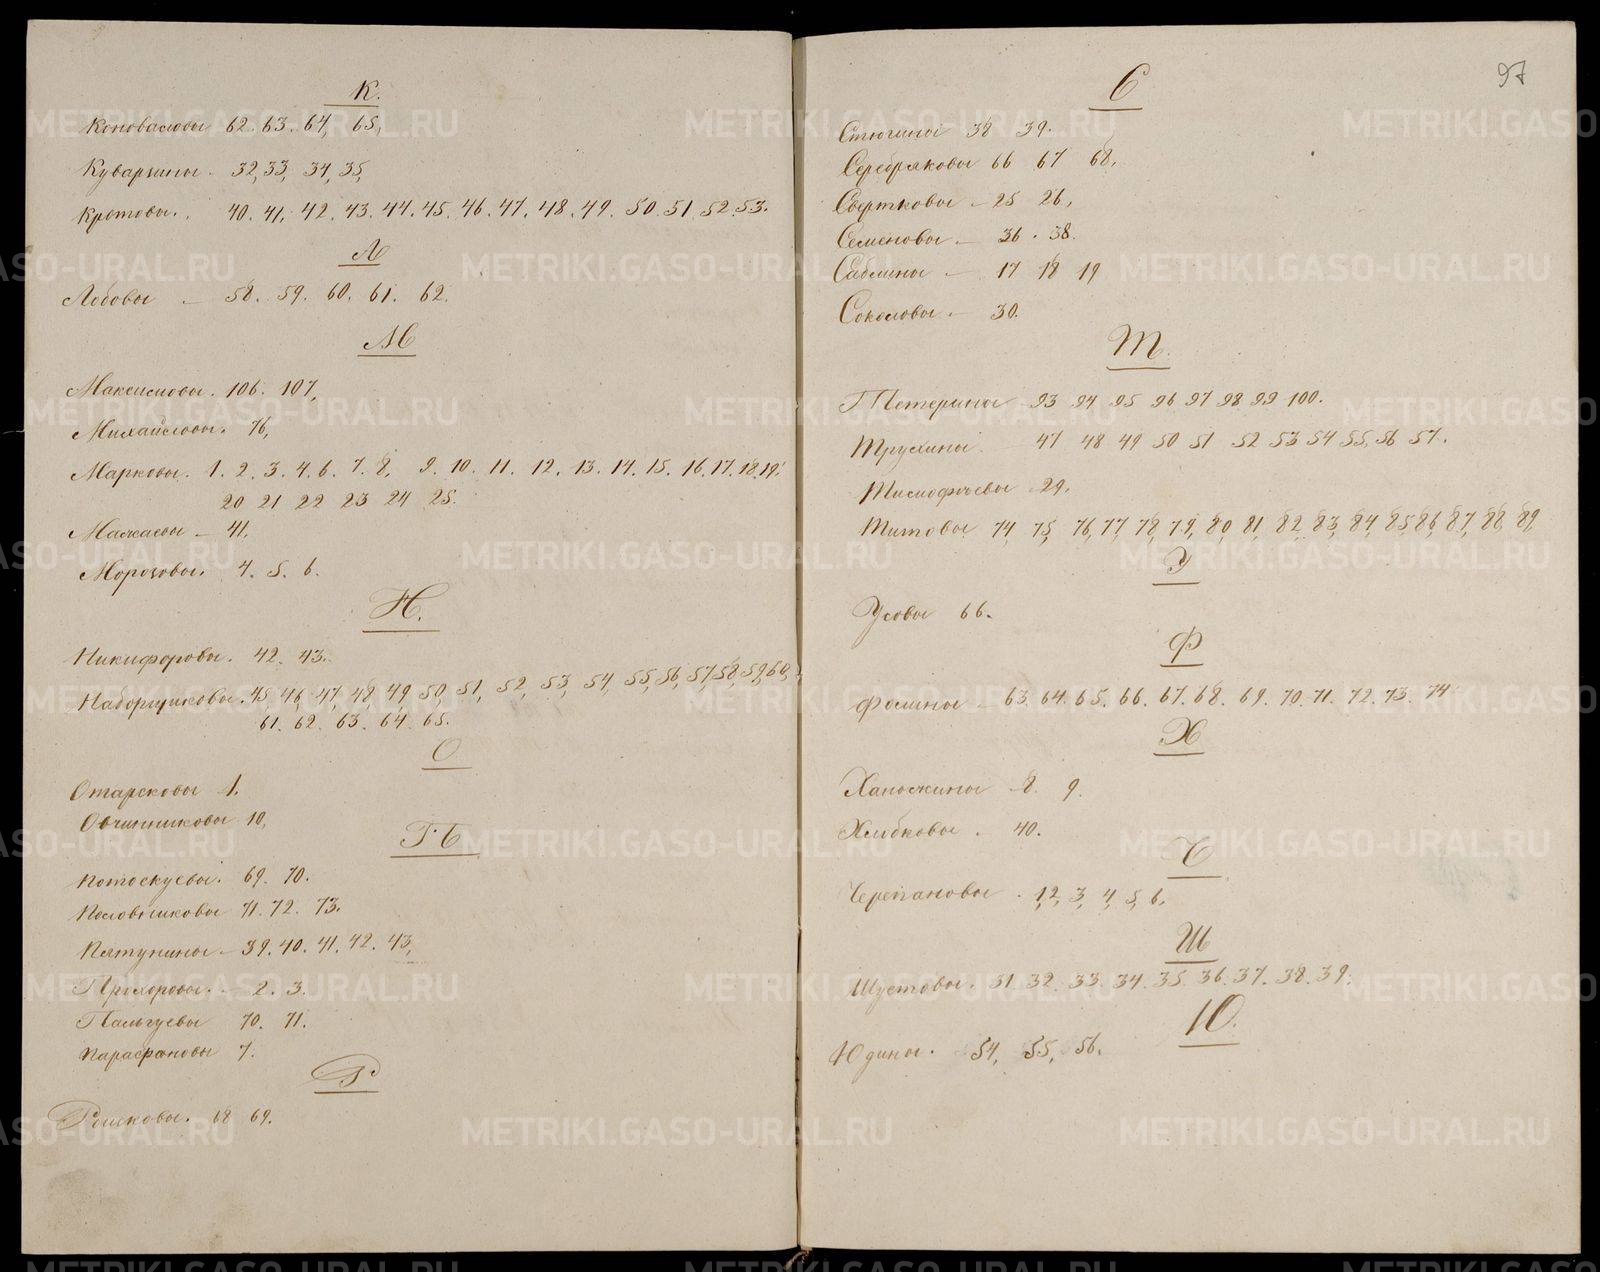 К.
Коноваловы 62. 63. 64, 65,
Куваргины - 32, 33, 34, 35,
Кротовы. 40. 41. 42. 43. 44. 45. 46. 47. 48. 49. 50. 51. 52. 53.
Л
Лобовы - 58. 59. 60. 61. 62.
М
Максимовы. 106. 107,
Михайловы. 76,
Марковы. 1. 2. 3. 4. 6. 7. 8, 9. 10. 11. 12. 13. 14. 15. 16. 17. 18. 19.
20 21 22 23 24 25.
- 41.
Морозовы. 4. 5. 6.
Н.
Никифоровы. 42. 43.
Наборщиковы. 45, 46, 47, 48, 49, 50, 51, 52, 53, 54, 55, 56, 57, 58, 59, 60,
61. 62. 63. 64. 65.
О
Отарсковы 1.
Овчинниковы 10,
П
Потоскуевы. 69. 70.
Половниковы 71. 72. 73.
Пятунины - 39. 40. 41. 42. 43,
Прохоровы. - 2. 3.
Пальгуевы 70. 71.
Парафановы 7.
Р
68 69.
97
С
Стюгины 38 39.
Серебряковы 66 67 68,
Свертковы - 25 26,
Семеновы - 36. 38.
Саблины - 17 18 19
Соколовы - 30.
Т.
Тетерины 93 94 95 96 97 98 99 100.
Трухины 47 48 49 50 51 52 53 54 55, 56 57.
Тимофеевы 29.
Титовы 74 75, 76, 77, 78, 79, 80 81, 82, 83, 84, 85, 86, 87, 88, 89,
У
Усовы 66.
Ф
Фомины - 63. 64. 65. 66. 67. 68. 69. 70. 71. 72. 73. 74
Х
8. 9.
Хлобковы. 40.
Ч
Черепановы. 1, 2, 3, 4, 5, 6.
Ш
Шустовы. 31 32. 33. 34. 35. 36. 37. 38. 39.
Ю.
Юдины. 54, 55, 56.